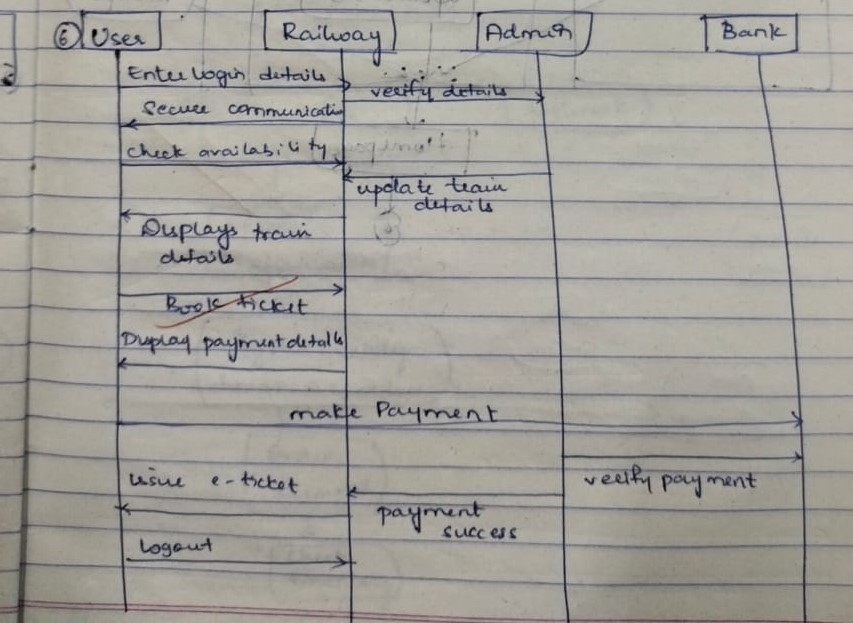 ⑥ User Railway Admin Bank
Enter login details
verify details
Secure communicatio
Check availability
update train
details
Displays train
details
Book ticket
Display payment details
make Payment
verify payment
issue e-ticket
payment
success
logout